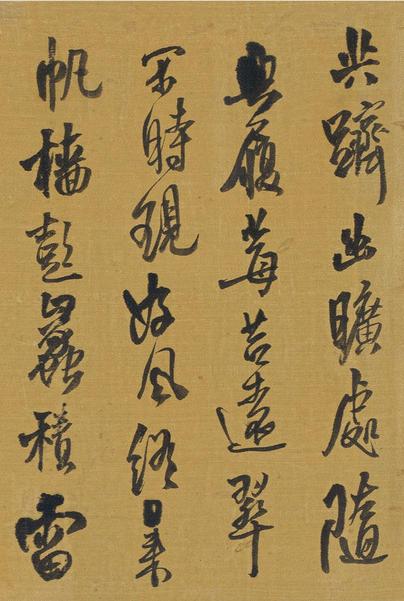 共躋幽曠處隨
興履莓苔遠翠
閑時現好風終日來
帆檣彭蠡積雷